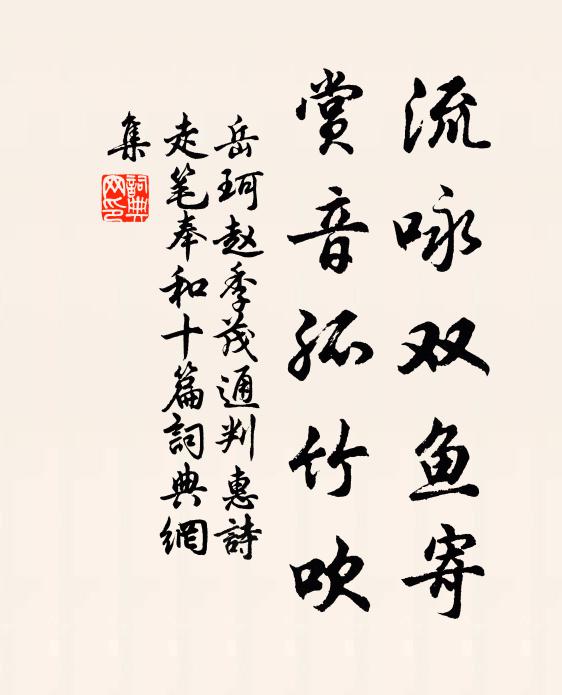 流咏双鱼寄
赏音孤竹吹
岳珂赵季茂通判惠詩
走笔奉和十篇詞典網
集
詞典网印